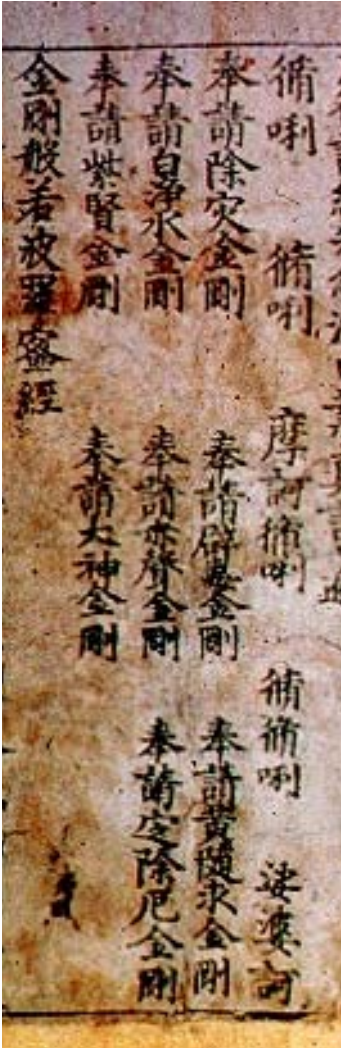 脩唎 脩唎 摩訶脩唎 脩脩唎 娑婆訶
奉請除灾金剛 奉請辟毒金剛 奉請黃隨求金剛
奉請白淨水金剛 奉請赤聲金剛 奉請定除厄金剛
奉請紫賢金剛 奉請大神金剛
金剛般若波羅蜜經